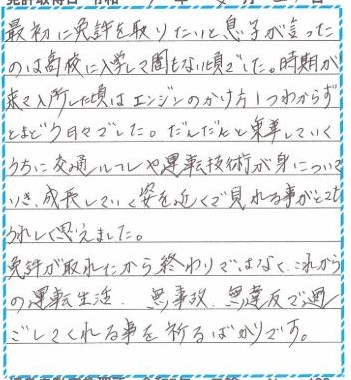 最初に免許を取りたいと息子が言った
のは高校に入学して間もない頃でした。時期が
来て入所した頃はエンジンのかけ方1つわからず
とまどう日々でした。だんだんと乗車していく
うちに交通ルールや運転技術が身について
いき、成長していく姿を近くで見れる事がとても
うれしく思えました。
免許が取れたから終わりではなく、これから
の運転生活、無事故、無違反で過
ごしてくれる事を祈るばかりです。